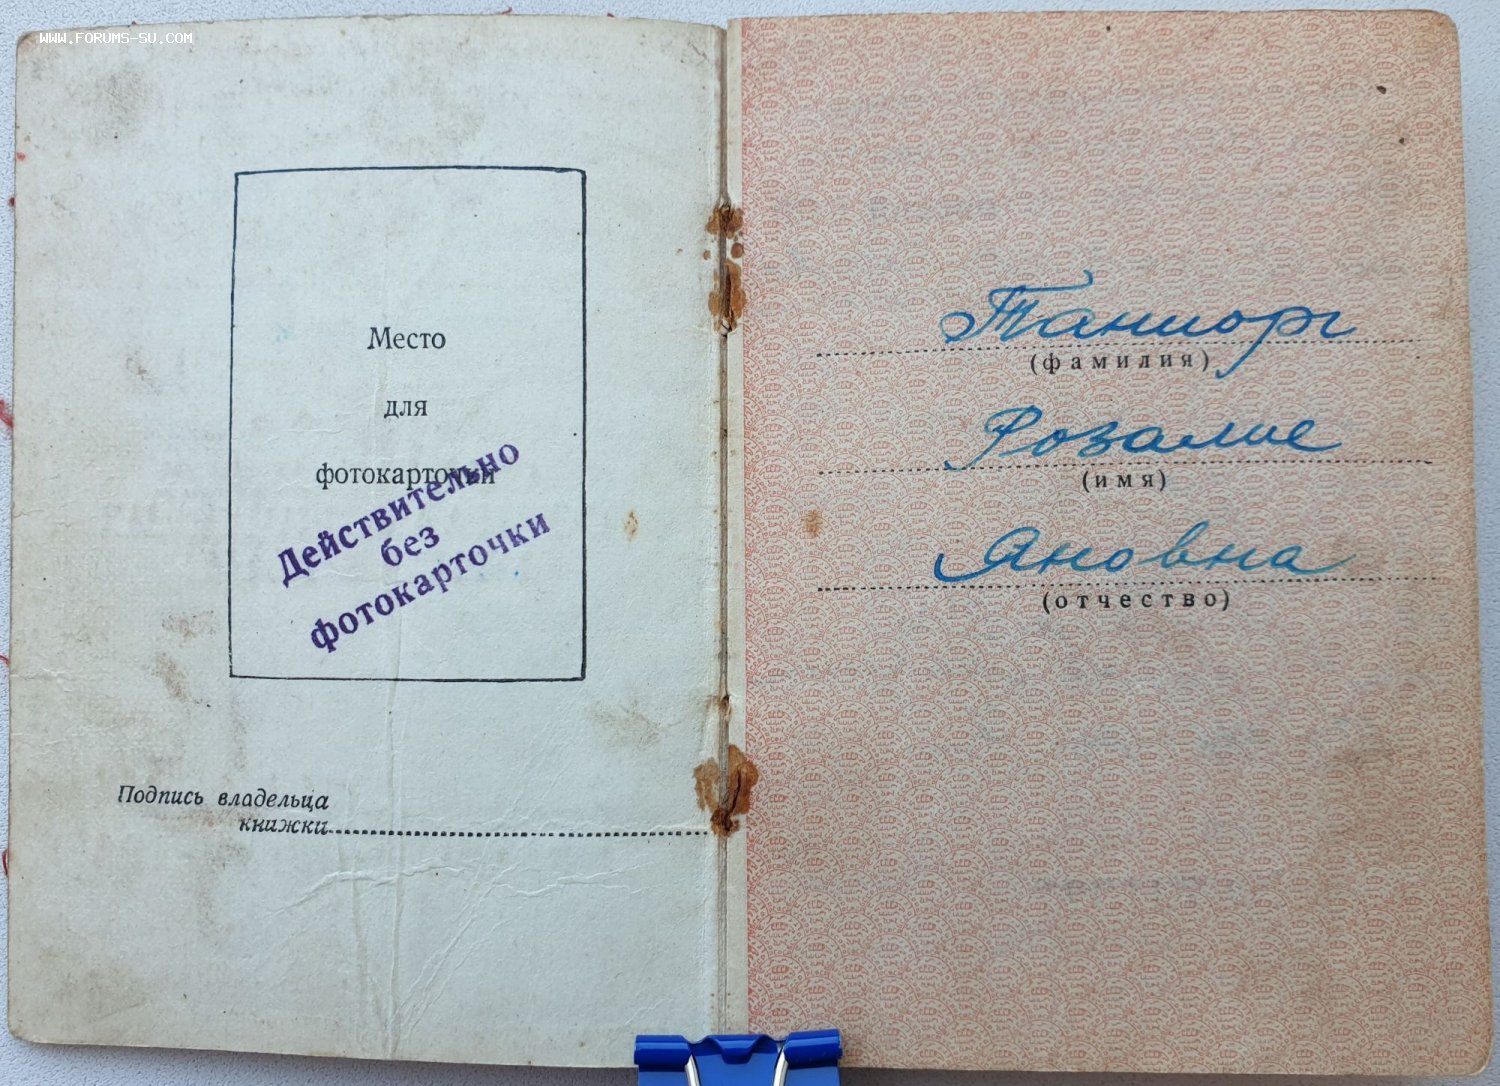 WWW.FORUMS-SU.COM
Место
для
фотокарточки
Действительно
без
фотокарточки
Подпись владельца
книжки
Таниорг
(фамилия)
Розалие
(имя)
Яновна
(отчество)